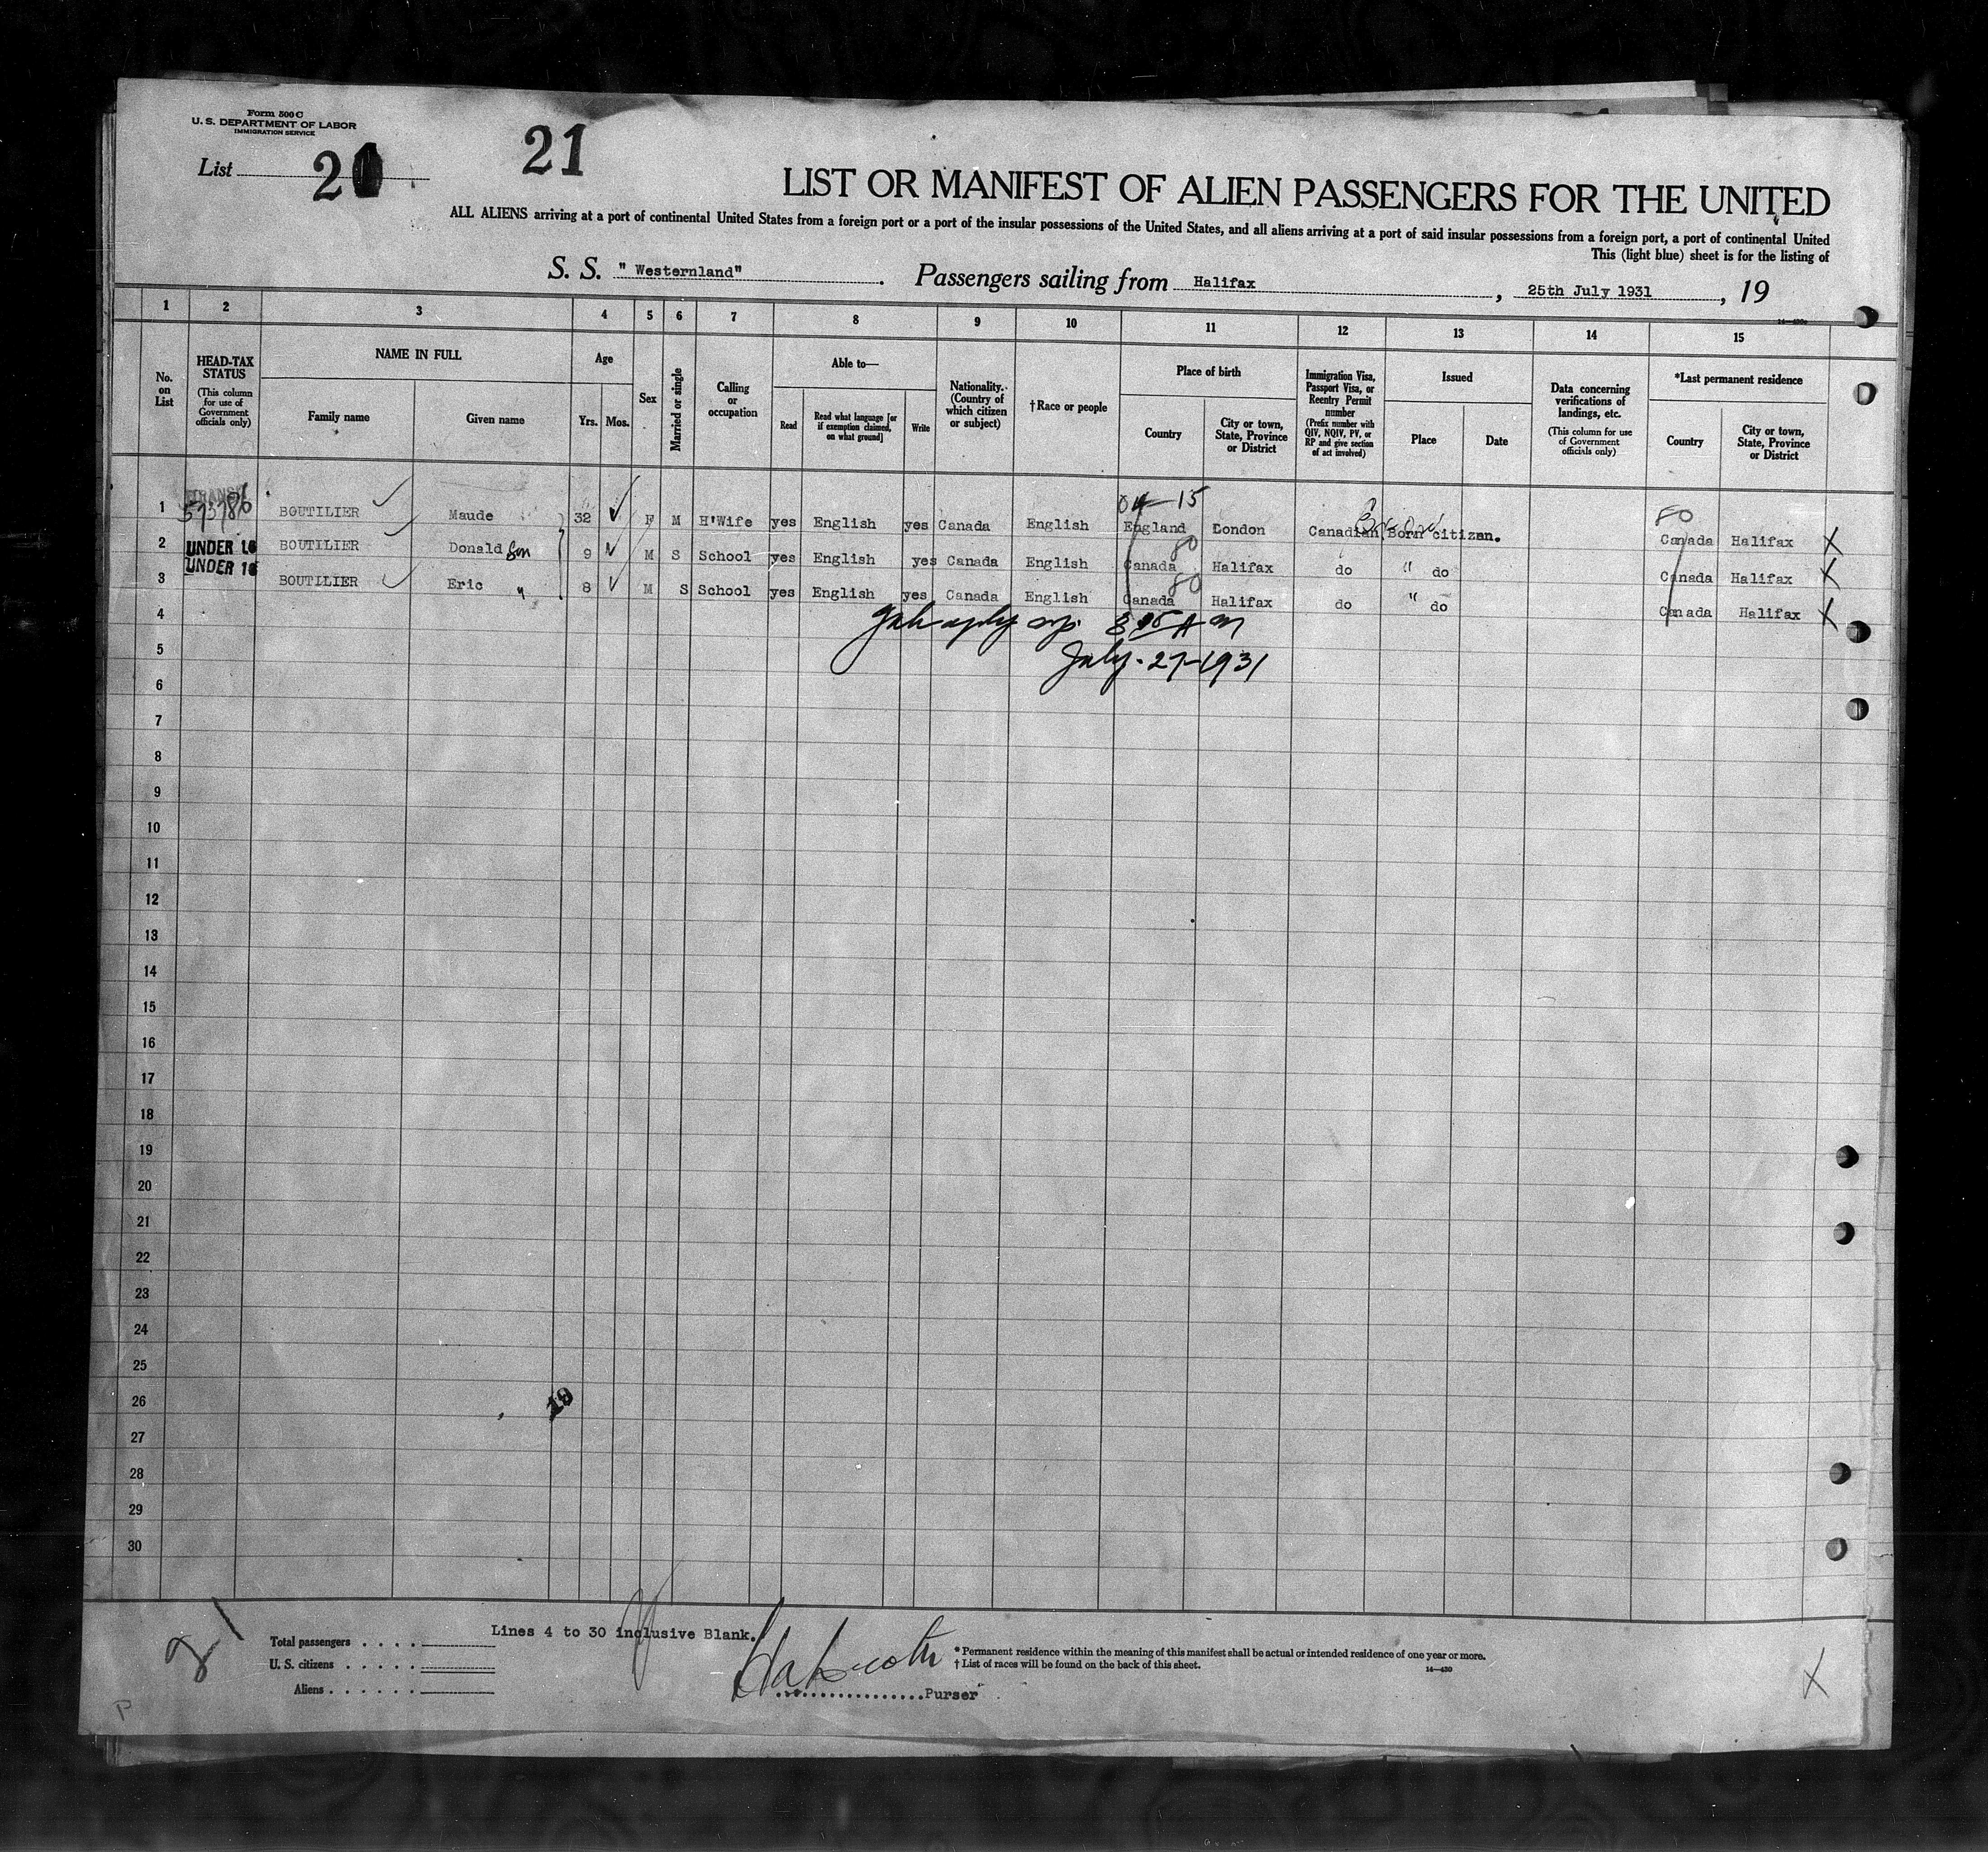 Form 500 C
U. S. DEPARTMENT OF LABOR
IMMIGRATION SERVICE
List 2
21
LIST OR MANIFEST OF ALIEN PASSENGERS FOR THE UNITED
ALL ALIENS arriving at a port of continental United States from a foreign port or a port of the insular possessions of the United States, and all aliens arriving at a port of said insular possessions from a foreign port, a port of continental United
This (light blue) sheet is for the listing of
S. S. " Westernland" . Passengers sailing from Halifax , 25th July 1931 , 19
1 2 3 4 5 6 7 8 9 10 11 12 13 14 15
No. on List
HEAD-TAX STATUS (This column for use of Government officials only)
NAME IN FULL
Family name
Given name
Age
Yrs. Mos.
Sex
Married or single
Calling or occupation
Able to—
Read
Read what language [or if exemption claimed, on what ground]
Write
Nationality. (Country of which citizen or subject)
†Race or people
Place of birth
Country
City or town, State, Province or District
Immigration Visa, Passport Visa, or Reentry Permit number (Prefix number with QIV, NQIV, PV, or RP and give section of act involved)
Issued
Place
Date
Data concerning verifications of landings, etc. (This column for use of Government officials only)
*Last permanent residence
Country
City or town, State, Province or District
04-15
80
1 BOUTILIER Maude 32 F M H'Wife yes English yes Canada English England London Canadian Born citizen. Canada Halifax X
80
2 UNDER 16 BOUTILIER Donald Son 9 M S School yes English yes Canada English Canada Halifax do " do Canada Halifax X
80
3 UNDER 16 BOUTILIER Eric " 8 M S School yes English yes Canada English Canada Halifax do " do Canada Halifax X
4
July-27-1931
5
6
7
8
9
10
11
12
13
14
15
16
17
18
19
20
21
22
23
24
25
26
27
28
29
30
Lines 4 to 30 inclusive Blank.
Total passengers . . . .
U. S. citizens . . . . .
Aliens . . . . . .
Purser
* Permanent residence within the meaning of this manifest shall be actual or intended residence of one year or more.
† List of races will be found on the back of this sheet.
14—430
X
P